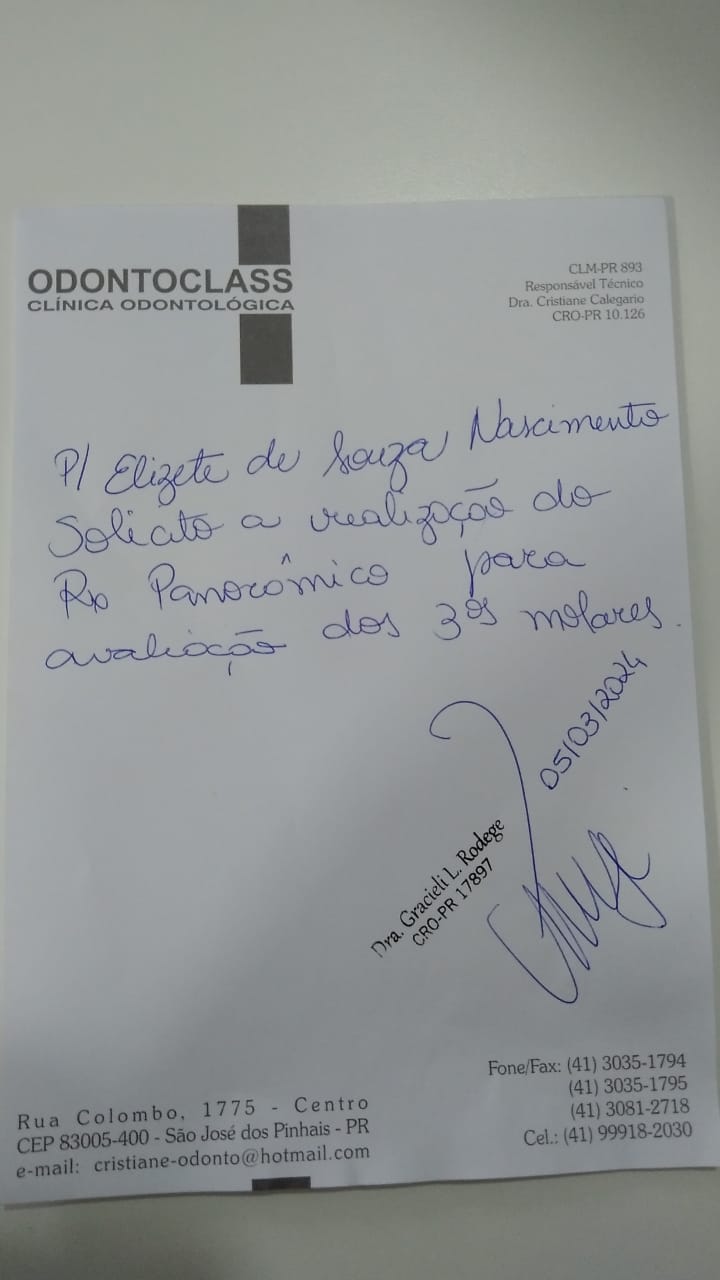 ODONTOCLASS
CLÍNICA ODONTOLÓGICA
CLM-PR 893
Responsável Técnico
Dra. Cristiane Calegario
CRO-PR 10.126
P/ Elizete de Souza Nascimento
Solicito a realização do
Rx Panorâmico para
avaliação dos 3ºs molares.
05/03/2024
Dra. Gracieli L. Rodege
CRO-PR 17897
Rua Colombo, 1775 - Centro
CEP 83005-400 - São José dos Pinhais - PR
e-mail: cristiane-odonto@hotmail.com
Fone/Fax: (41) 3035-1794
(41) 3035-1795
(41) 3081-2718
Cel.: (41) 99918-2030